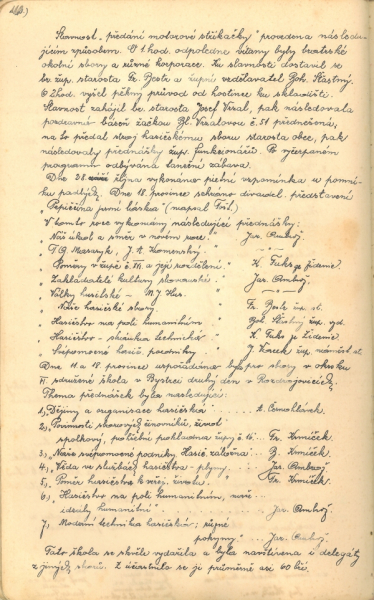 Slavnost „předání motorové stříkačky" provedena následu-
jícím způsobem. O 1 hod. odpoledne vítány byly bratrské
okolní sbory a různé korporace. Ku slavnosti dostavil se
br. žup. starosta Fr. Beste a župní vzdělavatel Boh. Šťastný.
O 2 hod. vyšel pěkný průvod od hostince ku skladišti.
Slavnost zahájil br. starosta Josef Víšal, pak následovala
pozdravná báseň žačkou Bl. Víšalovou č. 51 přednešená,
na to předal stroj hasičskému sboru starosta obce, pak
následovaly přednášky žup. funkcionářů. Po vyčerpaném
programu odbývána taneční zábava.
Dne 28. října vykonána pietní vzpomínka u pomní-
ku padlých. Dne 18. prosince sehráno divadel. představení
(napsal
V tomto roce vykonány následující přednášky:
Náš úkol a směr v novém roce. Jar. Ambrož.
T. G. Masaryk, J. A. Komenský. "
Poměry v župě č. VI. a její rozdělení. K. Fuks ze Ždenic
Zakladatelé kultury slovanské. Jar. Ambrož.
Války husitské – M. J. Hus. "
Naše hasičské sbory Fr. Beste žup. st.
Hasičstvo na poli humanitním Boh. Šťastný žup. vzd.
Hasičstvo – zkouška technická K. Fuks ze Ždenic
Svépomocné hasič. podniky J. žup. náměst. st.
Dne 11. a 18. prosince uspořádána byla pro sbory v okrsku
VI. sdružená škola v Bystrci druhý den v
Thema přednášek byla následující:
1, Dějiny a organisace hasičstva A.
2, Povinnosti sborových činovníků, život
spolkový, pohřební pokladna župy č. Fr.
3, Naše svépomocné podniky, Hasič. záložna
4, Věda ve službách hasičstva – plyny. Jar. Ambrož
5, Poměr hasičstva k veřej. životu. Fr.
6, Hasičstvo na poli humanitním, naše
ideály humanitní Jar. Ambrož.
7, Moderní technika hasičská; různé
pokyny Jar. Ambrož.
Tato škola se skvěle vydařila a byla navštívena i delegáty
z jiných sborů. Zúčastnilo se jí průměrně asi 60 br.